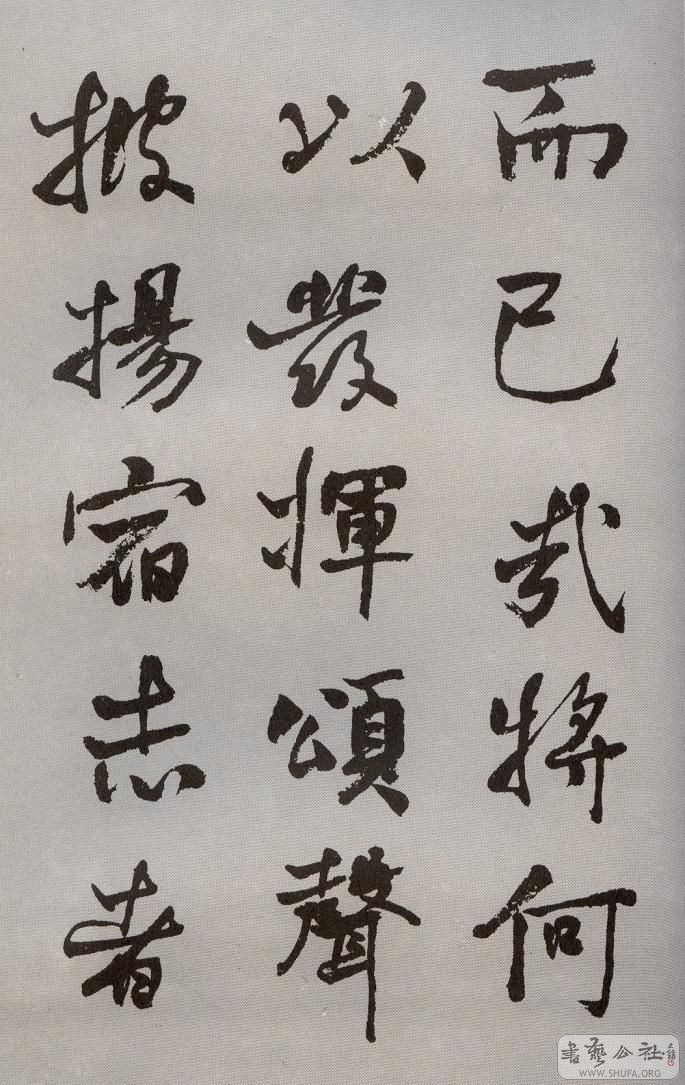 而已哉將何
以發揮頌聲
披揚宿志者
書藝公社
WWW.SHUFA.ORG